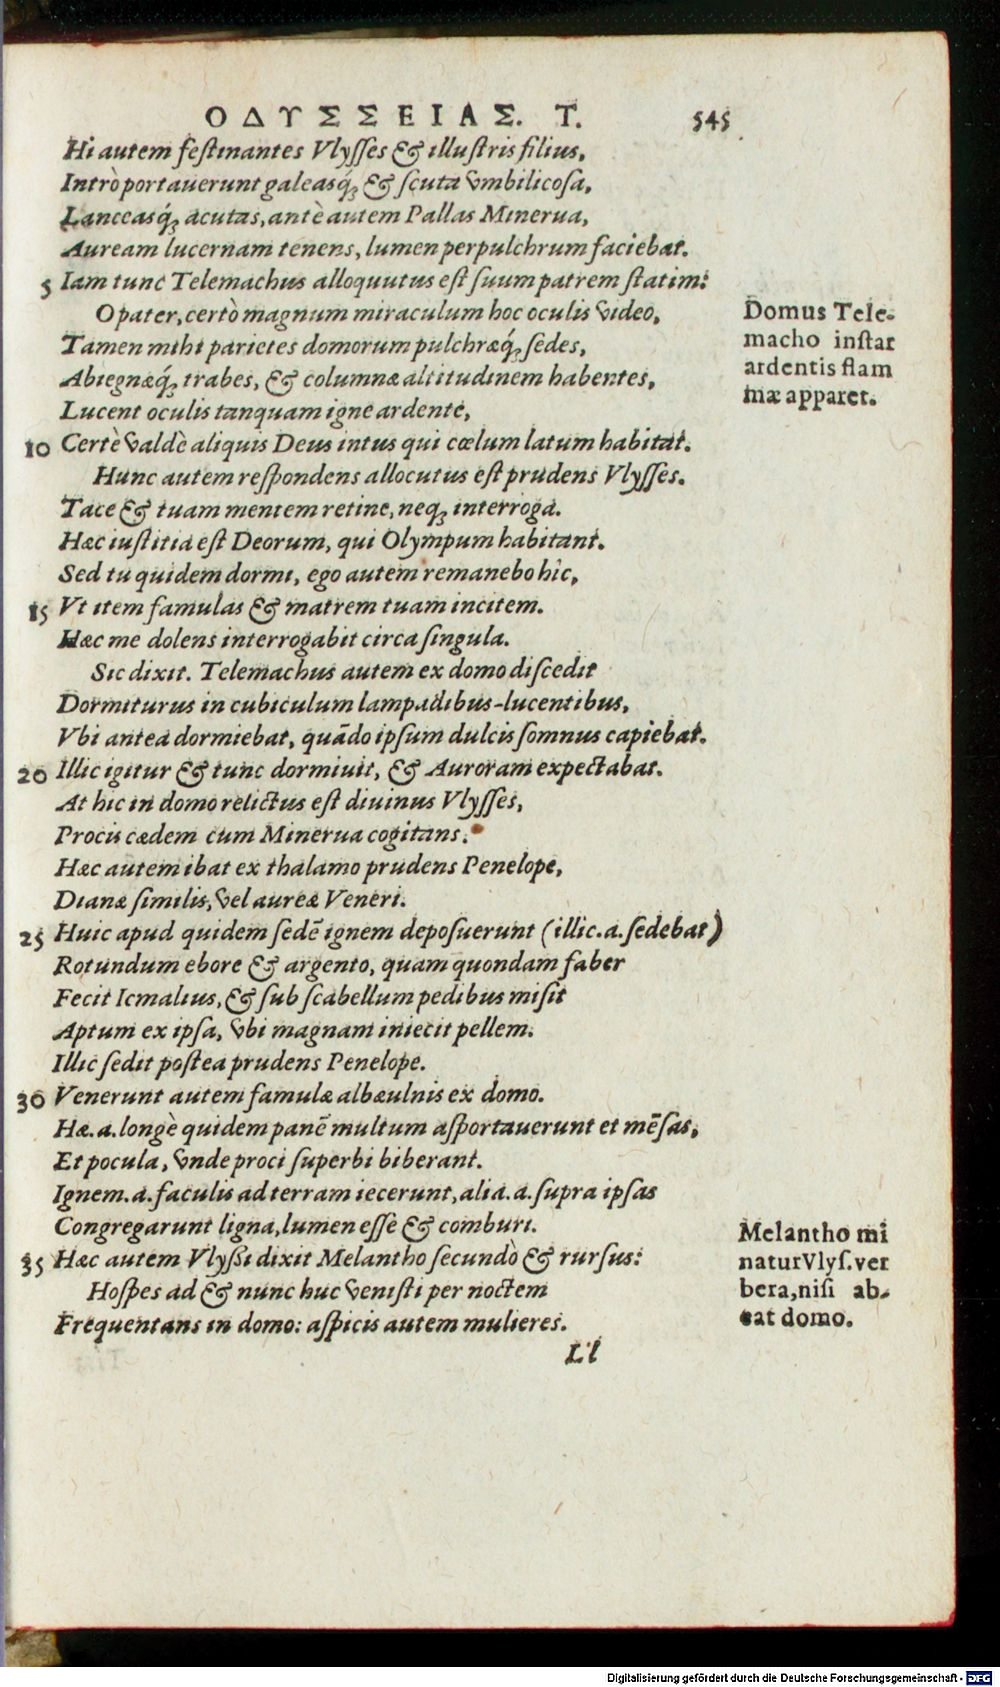 ΟΔΥΣΣΕΙΑΣ. Τ. 545
Hi autem festinantes Vlysses & illustris filius,
Intrò portauerunt galeasq́; & scuta vmbilicosa,
Lanceasq́; acutas, antè autem Pallas Minerua,
Auream lucernam tenens, lumen perpulchrum faciebat.
5 Iam tunc Telemachus alloquutus est suum patrem statim:
O pater, certò magnum miraculum hoc oculis video,
Tamen mihi parietes domorum pulchræq́; sedes,
Abiegnæq́; trabes, & columnæ altitudinem habentes,
Lucent oculis tanquam igne ardente,
10 Certè valdè aliquis Deus intus qui cœlum latum habitat.
Hunc autem respondens allocutus est prudens Vlysses.
Tace & tuam mentem retine, neq; interroga.
Hæc iustitia est Deorum, qui Olympum habitant.
Sed tu quidem dormi, ego autem remanebo hìc,
15 Vt item famulas & matrem tuam incitem.
Hæc me dolens interrogabit circa singula.
Sic dixit. Telemachus autem ex domo discedit
Dormiturus in cubiculum lampadibus-lucentibus,
Vbi antea dormiebat, quãdo ipsum dulcis somnus capiebat.
20 Illic igitur & tunc dormiuit, & Auroram expectabat.
At hic in domo relictus est diuinus Vlysses,
Procis cædem cum Minerua cogitans.
Hæc autem ibat ex thalamo prudens Penelope,
Dianæ similis, vel aureæ Veneri.
25 Huic apud quidem sedẽ ignem deposuerunt (illic.a.sedebat)
Rotundum ebore & argento, quam quondam faber
Fecit Icmalius, & sub scabellum pedibus misit
Aptum ex ipsa, vbi magnam iniecit pellem.
Illic sedit postea prudens Penelope.
30 Venerunt autem famulæ albæulnis ex domo.
Hæ.a.longè quidem panẽ multum asportauerunt et mẽsas,
Et pocula, vnde proci superbi biberant.
Ignem.a.faculis ad terram iecerunt, alia.a.supra ipsas
Congregarunt ligna, lumen esse & comburi.
35 Hæc autem Vlyssi dixit Melantho secundò & rursus:
Hospes ad & nunc huc venisti per noctem
Frequentans in domo: aspicis autem mulieres.
Ll
Domus Tele-
macho instar
ardentis flam
mæ apparet.
Melantho mi
natur Vlys. ver
bera, nisi ab-
eat domo.
Digitalisierung gefördert durch die Deutsche Forschungsgemeinschaft - DFG